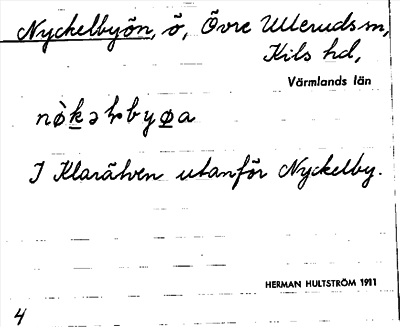 Nyckelbyön, ö, Övre Ulleruds sn,
Kils hd,
Värmlands län
nø̀kəlbyøa
I Klarälven utanför Nyckelby.
HERMAN HULTSTRÖM 1911
4